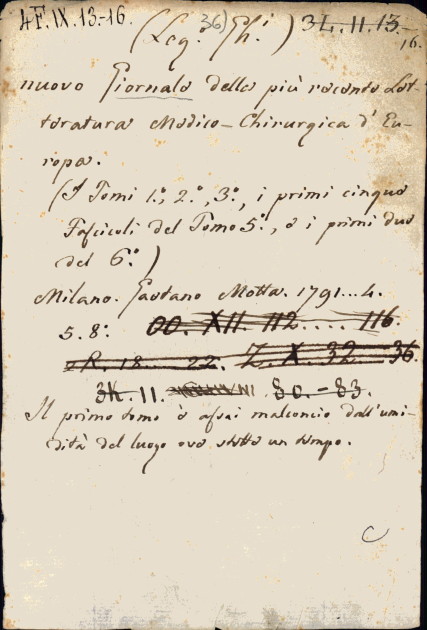 4F.IX.13.-16. (Leg. 36) Gh.i) 3L.11.13.
16.
nuovo Giornale della più recente Let-
teratura Medico-Chirurgica d'Eu-
ropa.
(I Tomi 1.º, 2.º, 3.º, i primi cinque
Fascicoli del Tomo 5.º, e i primi due
del 6.º)
Milano. Gaetano Motta. 1791...4.
5. 8.º OO. XII. 112.... 116.
R. 18..... 22. Z. X. 32... 36.
3K. 11. 80.-83.
Il primo tomo è assai malconcio dall'umi-
dità del luogo ove stette un tempo.
C